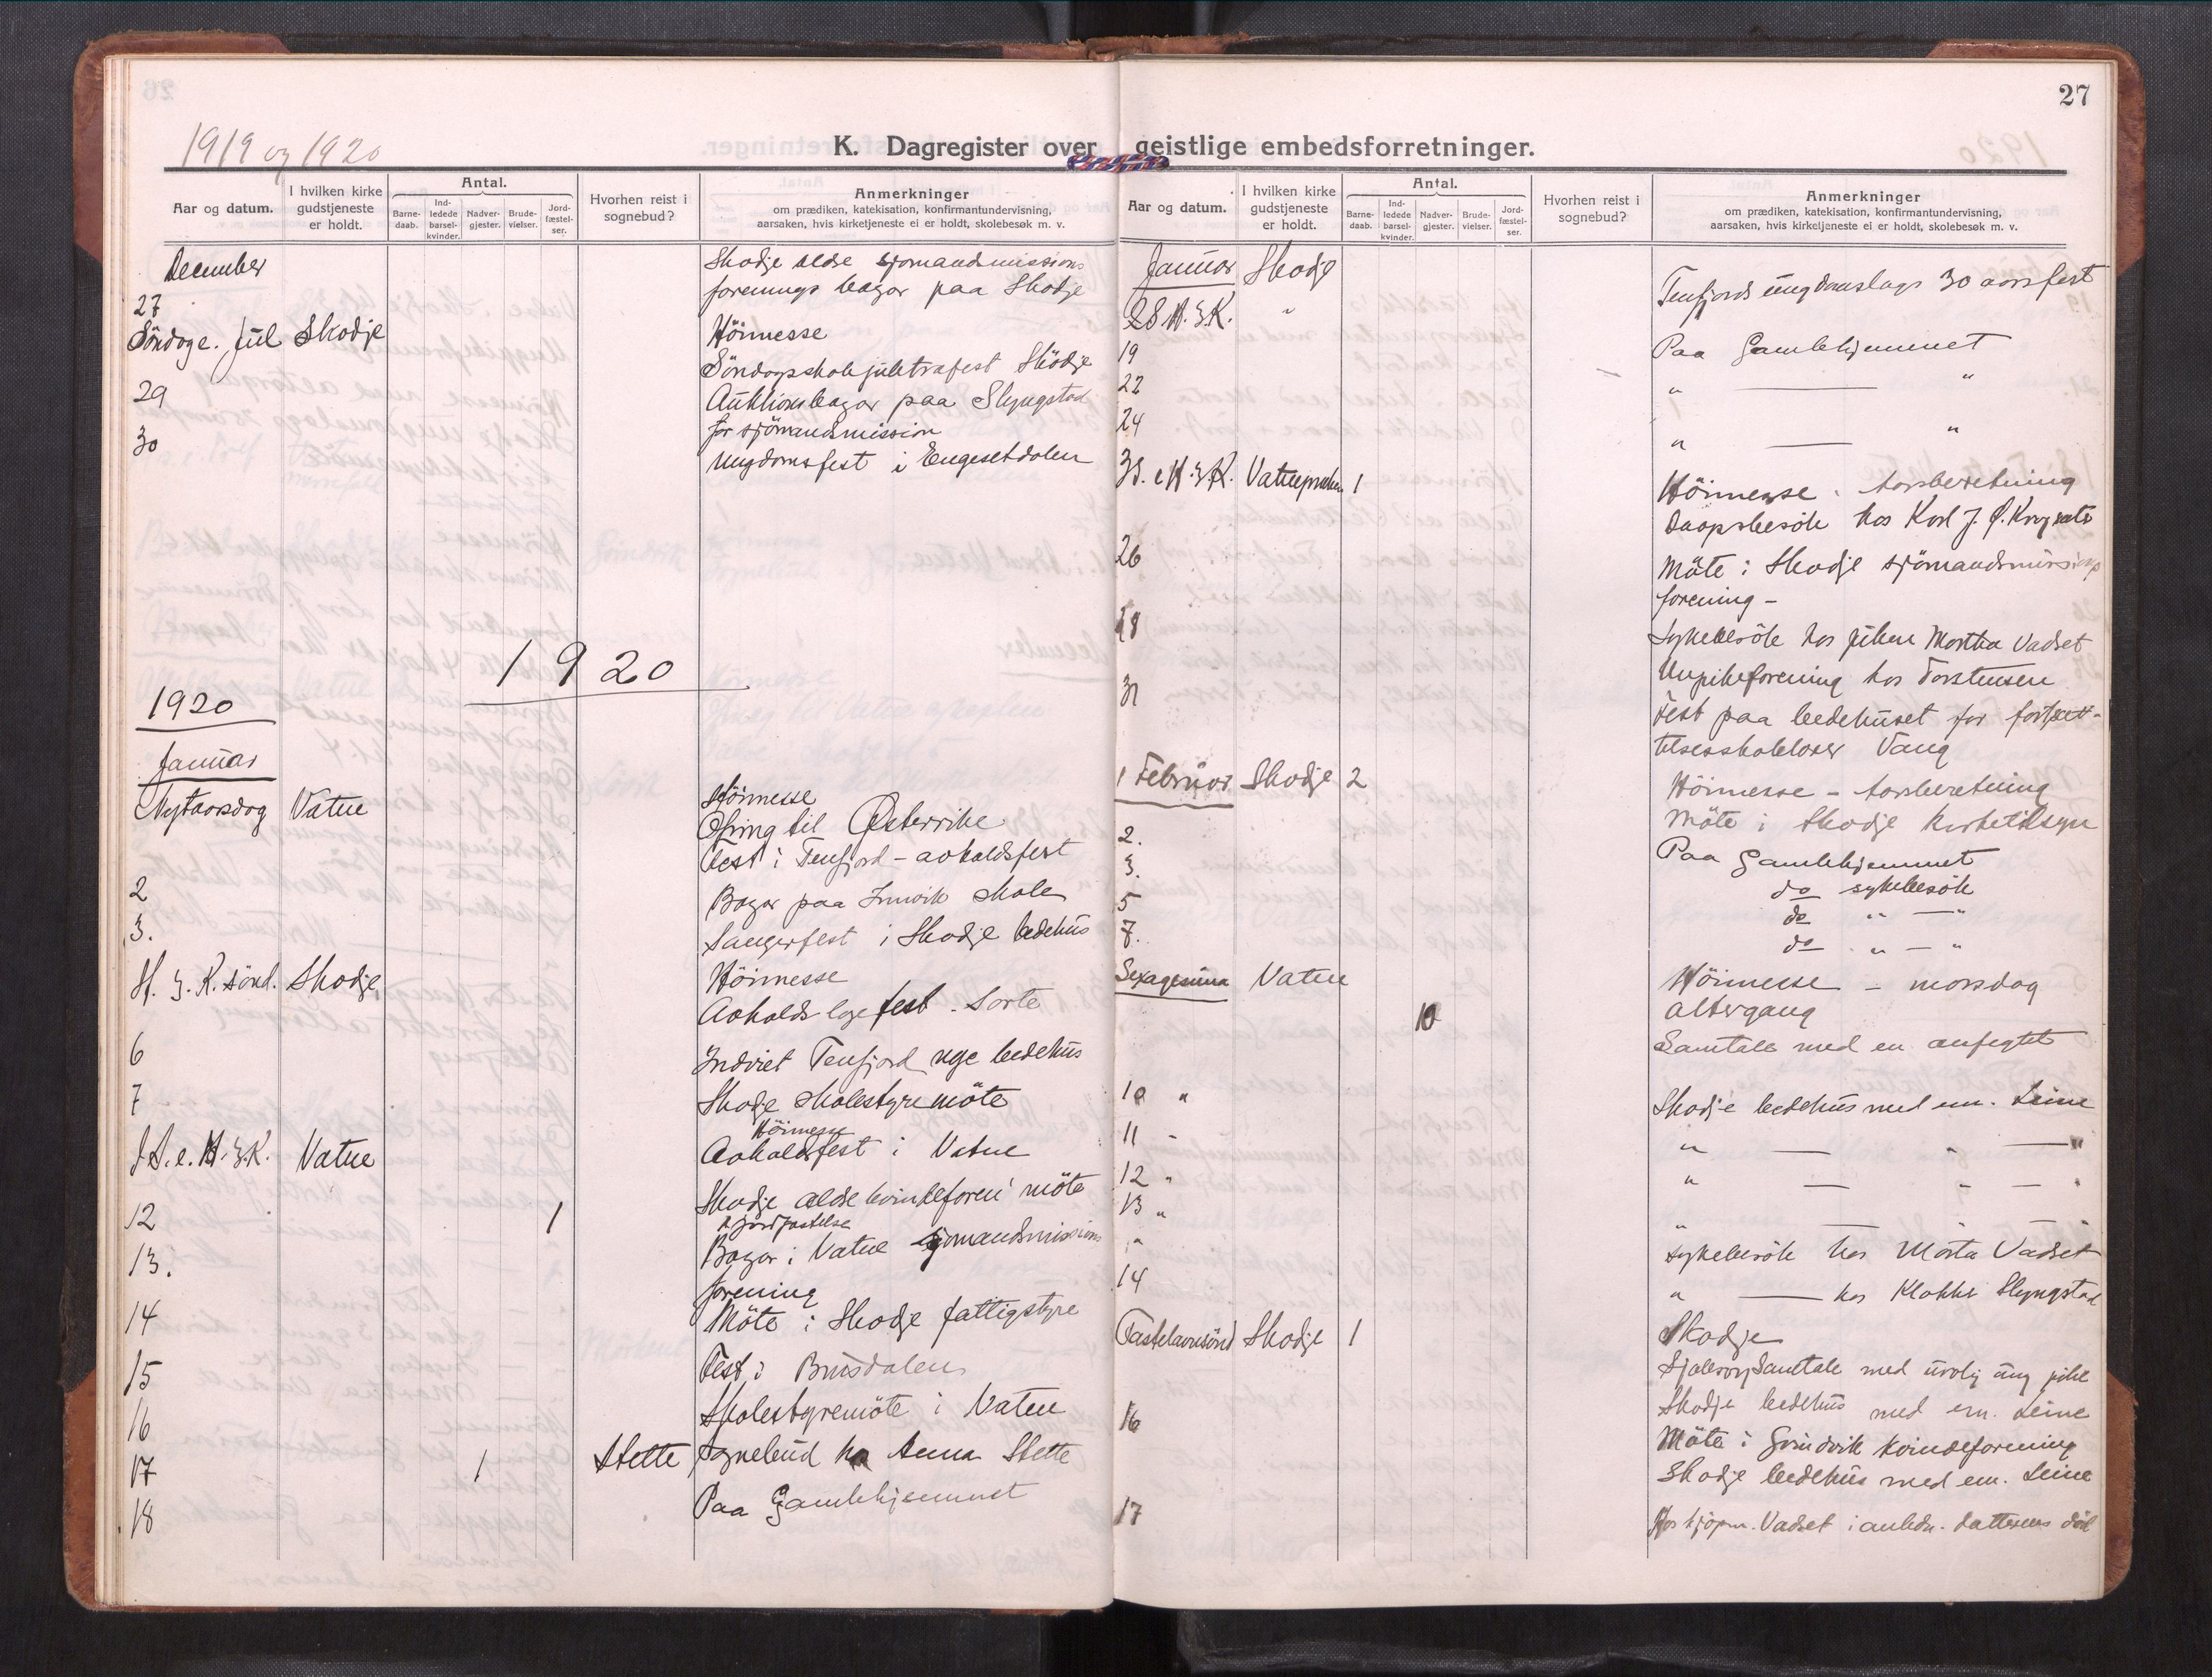 1919 og 1920
K. Dagregister over
Aar og datum.
I hvilken kirke gudstjeneste er holdt.
Antal.
Barne-daab.
Ind-ledede barsel-kvinder.
Nadver-gjester.
Brude-vielser.
Jord-fæstel-ser.
Hvorhen reist i sognebud?
Anmerkninger
om prædiken, katekisation, konfirmantundervisning,
aarsaken, hvis kirketjeneste ei er holdt, skolebesøk m. v.
December Skodje eldre sjömandsmissions
27 forenings bazar paa Skodje
Söndag e. Jul Skodje Höimesse
Söndagsskolejuletræfest Skodje
29 Auktionsbazar paa Slyngstad
for sjömandsmission
30 Ungdomsfest i Engesetdalen
1920
1920
Januar
Nytaarsdag Vatne Höimesse
Ofring til Østerrike
Fest i Tenfjord - avholdsfest
2 Bazar paa Innvik skole
3. Sangerfest i Skodje bedehus
H. 3. K. sönd. Skodje Höimesse
Avholdslagefest. Sorte
6 Indviet Tenfjord nye bedehus
7 Skodje skolestyremöte
Höimesse
1 S. e. H. 3. K. Vatne Avholdsfest i Vatne
12 1 Skodje eldre kvindeforen. möte
& jordfæstelse
13. Bazar i Vatne sjömandsmissions
forening
14 Möte i Skodje fattigstyre
15 Fest i Brusdalen
16 Skolestyremöte i Vatne
17 1 Stette Sognebud hos Anna Stette
18 Paa Gamlehjemmet
27
geistlige embedsforretninger.
Aar og datum.
I hvilken kirke gudstjeneste er holdt.
Antal.
Barne-daab.
Ind-ledede barsel-kvinder.
Nadver-gjester.
Brude-vielser.
Jord-fæstel-ser.
Hvorhen reist i sognebud?
Anmerkninger
om prædiken, katekisation, konfirmantundervisning,
aarsaken, hvis kirketjeneste ei er holdt, skolebesøk m. v.
Januar Skodje Tenfjords ungdomslags 30 aarsfest
2 S H. 3. K. "
19 Paa Gamlehjemmet
22 " — "
24 " — "
3 S. e H. 3. K. Vatne 1 Höimesse. Aarsberetning
Daapsbesök hos Karl J. Ø.
26 Möte i Skodje sjömandsmissions
forening -
28 Sykebesök hos piken Martha Vadset
Unpikeforening hos Torstensen
31 Fest paa bedehuset for fortsæt-
telsesskolelærer Vang
1 Februar Skodje 2 Höimesse - Aarsberetning
Möte i Skodje kirketilsyn
2. Paa Gamlehjemmet
3. do sykebesök
5 do " — "
7. do " — "
Sexagesima Vatne Höimesse - morsdag
10 altergang
Samtale med en anfegtet
10 " Skodje bedehus med em. Leine
11 " " — " — "
12 " " — " — "
13 " " — " —
" sykebesök hos Marta Vadset
14 " — hos Klokker Slyngstad
Fastelavnsönd Skodje 1 Skodje
Sjælesorgsamtale med urolig ung pike
Skodje bedehus med em. Leine
16 Möte i Grindvik kvindeforening
Skodje bedehus med em. Leine
17 Hos kjöpm. Vadset i anledn. datterens död